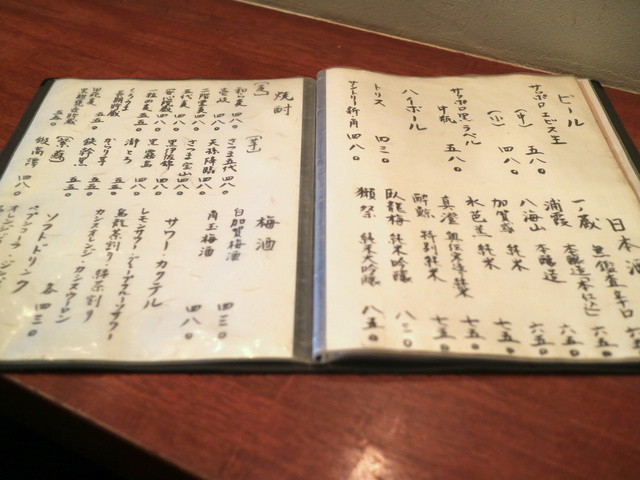 ビール
サッポロ ヱビス生
(中) 五八〇
(小) 四八〇
サッポロ黒ラベル
中瓶 五八〇
ハイボール
トリス 四三〇
サントリー新角 四八〇
日本酒
一ノ蔵 無鑑査辛口 六五〇
浦霞 本醸造本仕込 六五〇
八海山 本醸造 六五〇
加賀鳶 純米 七五〇
水芭蕉 純米 七五〇
真澄 純米 七五〇
酔鯨 特別純米
臥龍梅 純米吟醸 八三〇
獺祭 純米大吟醸 八五〇
焼酎
[麦]
和ら麦 四八〇
壱岐 四八〇
二階堂麦 四八〇
五代麦 四八〇
一粒の麦 五五〇
くろうま
長期貯蔵 五五〇
五五〇
[芋]
さつま五代 四八〇
天孫降臨 四八〇
さつま宝山 四八〇
黒伊佐錦 四八〇
黒霧島 四八〇
海
からり芋 五五〇
鉄幹黒 五五〇
[紫蘇]
鍛高譚 四八〇
梅酒
白加賀梅酒 四三〇
角玉梅酒 四八〇
サワー カクテル
レモンサワー・グレープフルーツサワー
烏龍茶割り・緑茶割り
カシスオレンジ・カシスウーロン
各 四三〇
ソフトドリンク